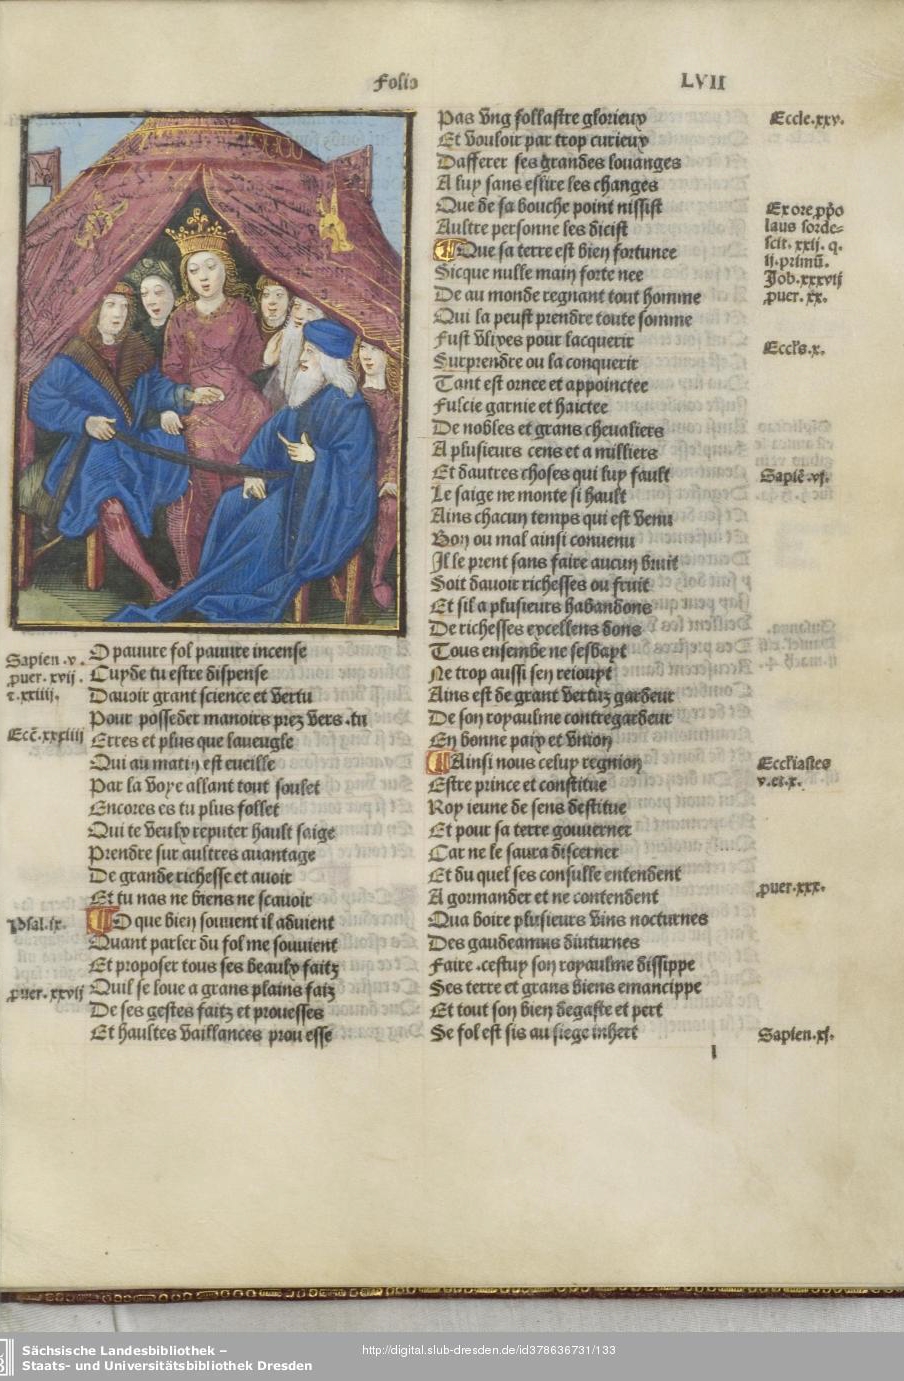 Folio LVII
Sapien .v.
prouer. xvij.
⁊. xxiiij.
Ecc̃. xxxiiij
Psal. ix.
prouer. xxvij
O pauure fol pauure incense
Cuyde tu estre dispense
Dauoir grant science et vertu
Pour posseder manoirs prez vers .tu
Erres et plus que laueugle
Qui au matin est eueille
Par la voye allant tout seulet
Encores es tu plus follet
Qui te veulx reputer hault saige
Prendre sur aultres auantage
De grande richesse et auoir
Et tu nas ne biens ne scauoir
O que bien souuent il aduient
Quant parler du fol me souuient
Et proposer tous ses beaulx faitz
Quil se loue a grans plains faiz
De ses gestes faitz et prouesses
Et haultes vaillances prou esse
Pas vng follastre glorieux
Et vouloir par trop curieux
Dafferer ses grandes louanges
A luy sans eslire les changes
Que de sa bouche point nissist
Aultre personne les dicist
Que sa terre est bien fortunee
Sicque nulle main forte nee
De au monde regnant tout homme
Qui la peust prendre toute somme
Fust vlixes pour lacquerir
Surprendre ou la conquerir
Tant est ornee et appoinctee
Fulcie garnie et haictee
De nobles et grans cheualiers
A plusieurs cens et a milliers
Et dautres choses qui luy fault
Le saige ne monte si hault
Ains chacun temps qui est venu
Bon ou mal ainsi conuenu
Il le prent sans faire aucun bruit
Soit dauoir richesses ou fruit
Et sil a plusieurs habandons
De richesses excellens dons
Tous ensembe ne sesbayt
Ne trop aussi sen reiouyt
Ains est de grant vertuz gardeur
De son royaulme contregardeur
En bonne paix et vnion
Ainsi nous celuy regnion
Estre prince et constitue
Roy ieune de sens destitue
Et pour sa terre gouuerner
Car ne le saura discerner
Et du quel ses consulle entendent
A gormander et ne contendent
Qua boire plusieurs vins nocturnes
Des gaudeamus diuturnes
Faire .cestuy son royaulme dissippe
Ses terre et grans biens emancippe
Et tout son bien degaste et pert
Se fol est sis au siege inhert
l
Eccle. xxv.
Ex ore ꝓp̃o
laus sorde=
scit. xxij. q.
ij. primũ.
Job. xxxvij
prouer. xx.
Eccl's. x.
Sapiẽ. vj.
Eccl'iastes
v. et. x.
prouer. xxx.
Sapien. xj.
Sächsische Landesbibliothek –
Staats- und Universitätsbibliothek Dresden
http://digital.slub-dresden.de/id378636731/133